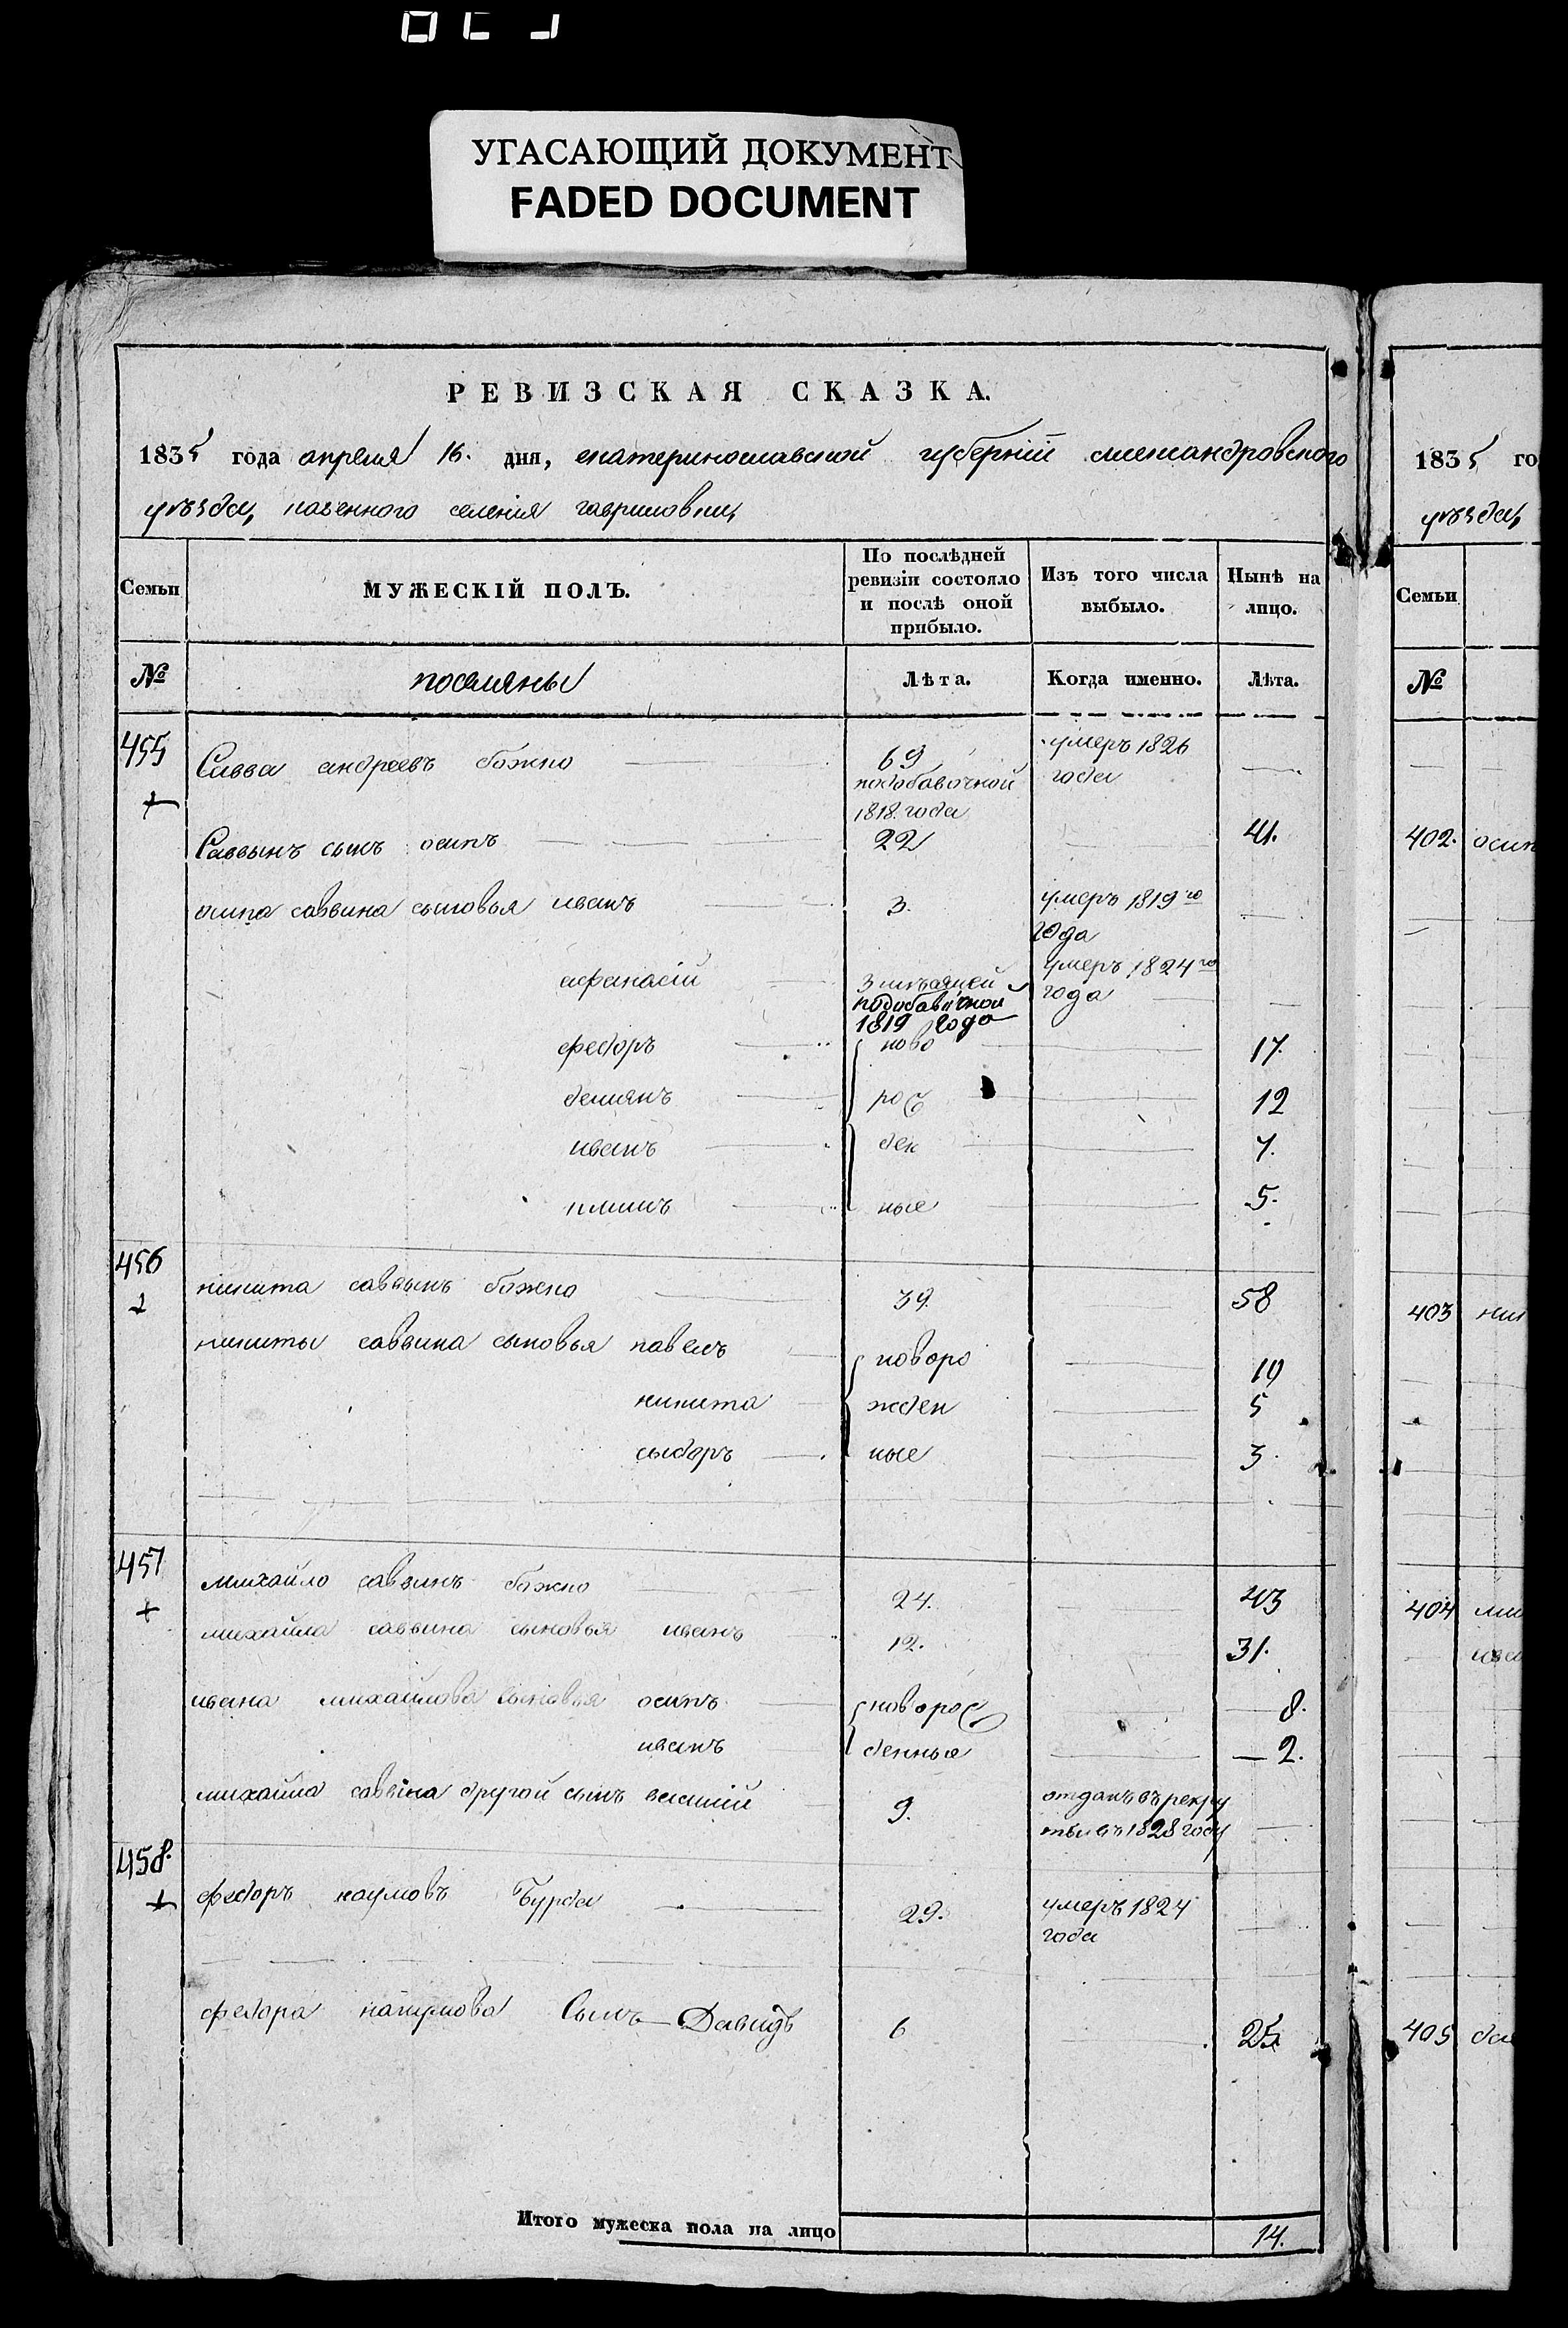 УГАСАЮЩИЙ ДОКУМЕНТ
FADED DOCUMENT
РЕВИЗСКАЯ СКАЗКА.
1835 года апреля 16. дня, екатеринославской губерніи александровского
уѣзда, казенного селенія гавриловки
Семьи МУЖЕСКІЙ ПОЛЪ. По послѣдней ревизіи состояло и послѣ оной прибыло. Изъ того числа выбыло. Нынѣ на лицо.
№ поселяны Лѣта. Когда именно. Лѣта.
455 Савва андреевъ божко 69 умеръ 1826 года
подобавочной 1818. года
Саввынъ сынъ осипъ 22 41.
осипа саввина сыновья иванъ 3. умеръ 1819го года
афанасій 3 умеръ 1824го года
подобавочной
1819 года
федоръ ново 17.
демянъ рож 12
иванъ ден 7.
климъ ные 5.
456 никита саввынъ божко 39. 58
никиты саввина сыновья павелъ новоро 10
никита жден 5
сыдоръ ные 3.
457 михайло саввинъ божко 24. 43
михайла саввина сыновья иванъ 12. 31.
ивана михайлова сыновья осипъ новорож 8.
иванъ денные 2.
михайла саввина другой сынъ 9. отданъ въ рекру
ты въ 1828 году
458. федоръ наумовъ Бурда 29. умеръ 1824 года
федора наумова Сынъ Давидъ 6 25
Итого мужеска пола на лицо 14.
1835 го
уѣзда,
Семьи
№
402. осип
403 ник
404 ми
ива
405 да